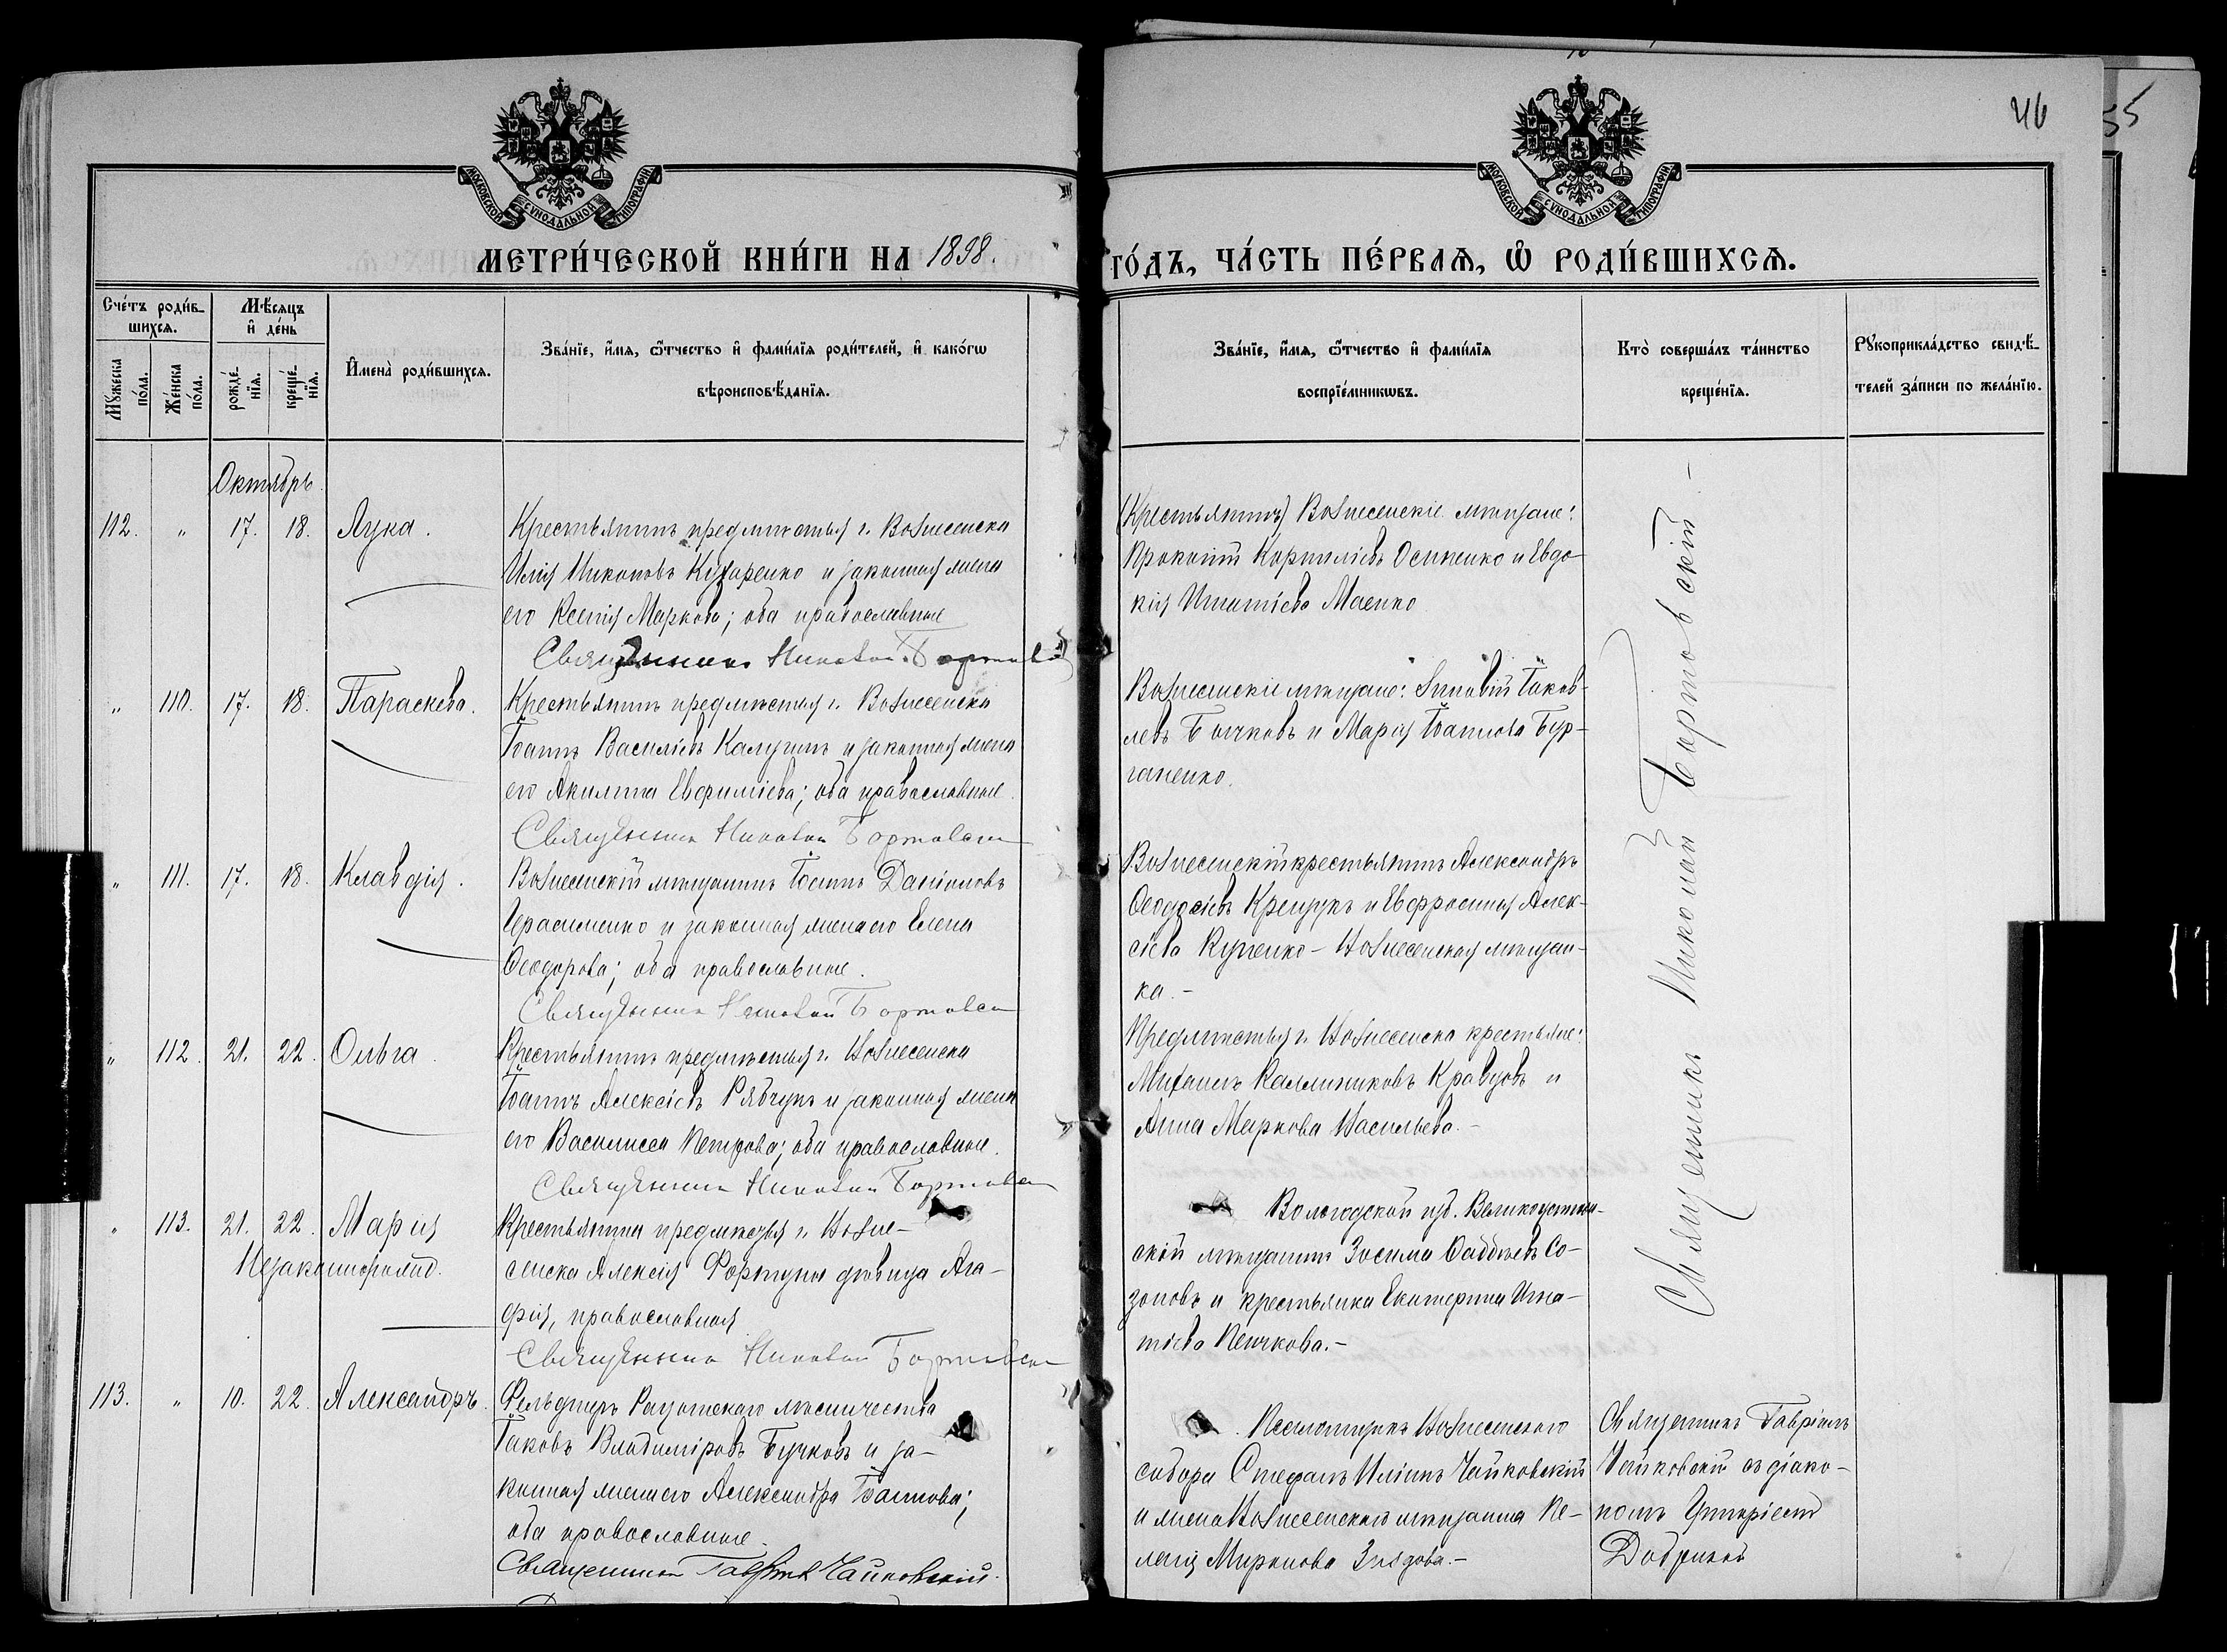 46
55
МОСКОВСКОЙ СУНОДАЛЬНОЙ ТИПОГРАФІИ
МОСКОВСКОЙ СУНОДАЛЬНОЙ ТИПОГРАФІИ
МЕТРИ́ЧЕСКОЙ КНИ́ГИ НА 1898. ГО́ДЪ, ЧА́СТЬ ПЕ́РВАѦ, Ѡ҆ РОДИ́ВШИХСѦ.
Сче́тъ роди́в-
шихсѧ.
Мꙋ́жеска
по́ла.
Же́нска
по́ла.
Мѣ́сѧцъ
и҆ де́нь
рожде́-
нїѧ.
креще́-
нїѧ.
И҆мена̀ роди́вшихсѧ.
Зва́нїе, и҆́мѧ, ѻ҆́тчество и҆ фами́лїѧ роди́телей, и҆ како́гѡ
вѣроисповѣ́данїѧ.
Зва́нїе, и҆́мѧ, ѻ҆́тчество и҆ фами́лїѧ
воспрїе́мникѡвъ.
Кто̀ соверша́лъ та́инство
креще́нїѧ.
Рꙋкоприкла́дство свидѣ́-
телей за́писи по жела́нїю.
Октябрь
112. " 17. 18. Лука.
Крестьянинъ предмѣстья г. Вознесенска
Илія Никоновъ Кухаренко и законная жена
его Ксенія Маркова; оба православные
Священникъ Николай Бортовс
(Крестьянинъ) Вознесенскіе мѣщане:
Прокопій Корниліевъ Осипенко и Евдо-
кія Игнатіева Маенко
" 110. 17. 18. Параскева.
Крестьянинъ предмѣстья г. Вознесенска
Іоаннъ Василіевъ Калугинъ и законная жена
его Акилина Евфиміева; оба православные.
Священникъ Николай Бортовск
Вознесенскіе мѣщане: Зиновій Іаков-
левъ Бычковъ и Марія Іоаннова Бур-
ганенко.
" 111. 17. 18. Клавдія.
Вознесенскій мѣщанинъ Іоаннъ Даніиловъ
Герасименко и законная жена его Елена
Ѳеодорова; оба православные.
Священникъ Николай Бортовск
Вознесенскій крестьянинъ Александръ
Ѳеодосіевъ Крещукъ и Евфросинія Алек-
сіева Куценко - Вознесенская мѣщан-
ка. -
" 112. 21. 22. Ольга.
Крестьянинъ предмѣстья г. Вознесенска
Іоаннъ Алексіевъ Рябчукъ и законная жена
его Василисса Петрова; оба православные.
Священникъ Николай Бортовск
Предмѣстья г. Вознесенска крестьяне:
Михаилъ Каллиниковъ Кравцовъ и
Анна Маркова Васильева. -
" 113. 21. 22. Марія
Незаконнорожд.
Крестьянина предмѣстья г. Возне-
сенска Алексія Фортуны дѣвица Ага-
фія, православная
Священникъ Николай Бортовск
Вологодской губ. Великоустюж-
скій мѣщанинъ Зосима Ѳаддѣевъ Со-
зоновъ и крестьянка Екатерина Игна-
тіева Пенчкова. -
Священникъ Николай Бортовскій -
113. " 10. 22. Александръ.
Фельдшеръ Рацынскаго лѣсничества
Іаковъ Владиміровъ Бучковъ и за-
конная жена его Александра Іоаннова;
оба православные.
Священникъ Гавріилъ Чайковскій.
Псаломщикъ Вознесенскаго
собора Стефанъ Иліинъ Чайковскій
и жена Вознесенскаго мѣщанина Пе-
лагія Миронова Зиздова. -
Священникъ Гавріилъ
Чайковскій съ діако-
номъ